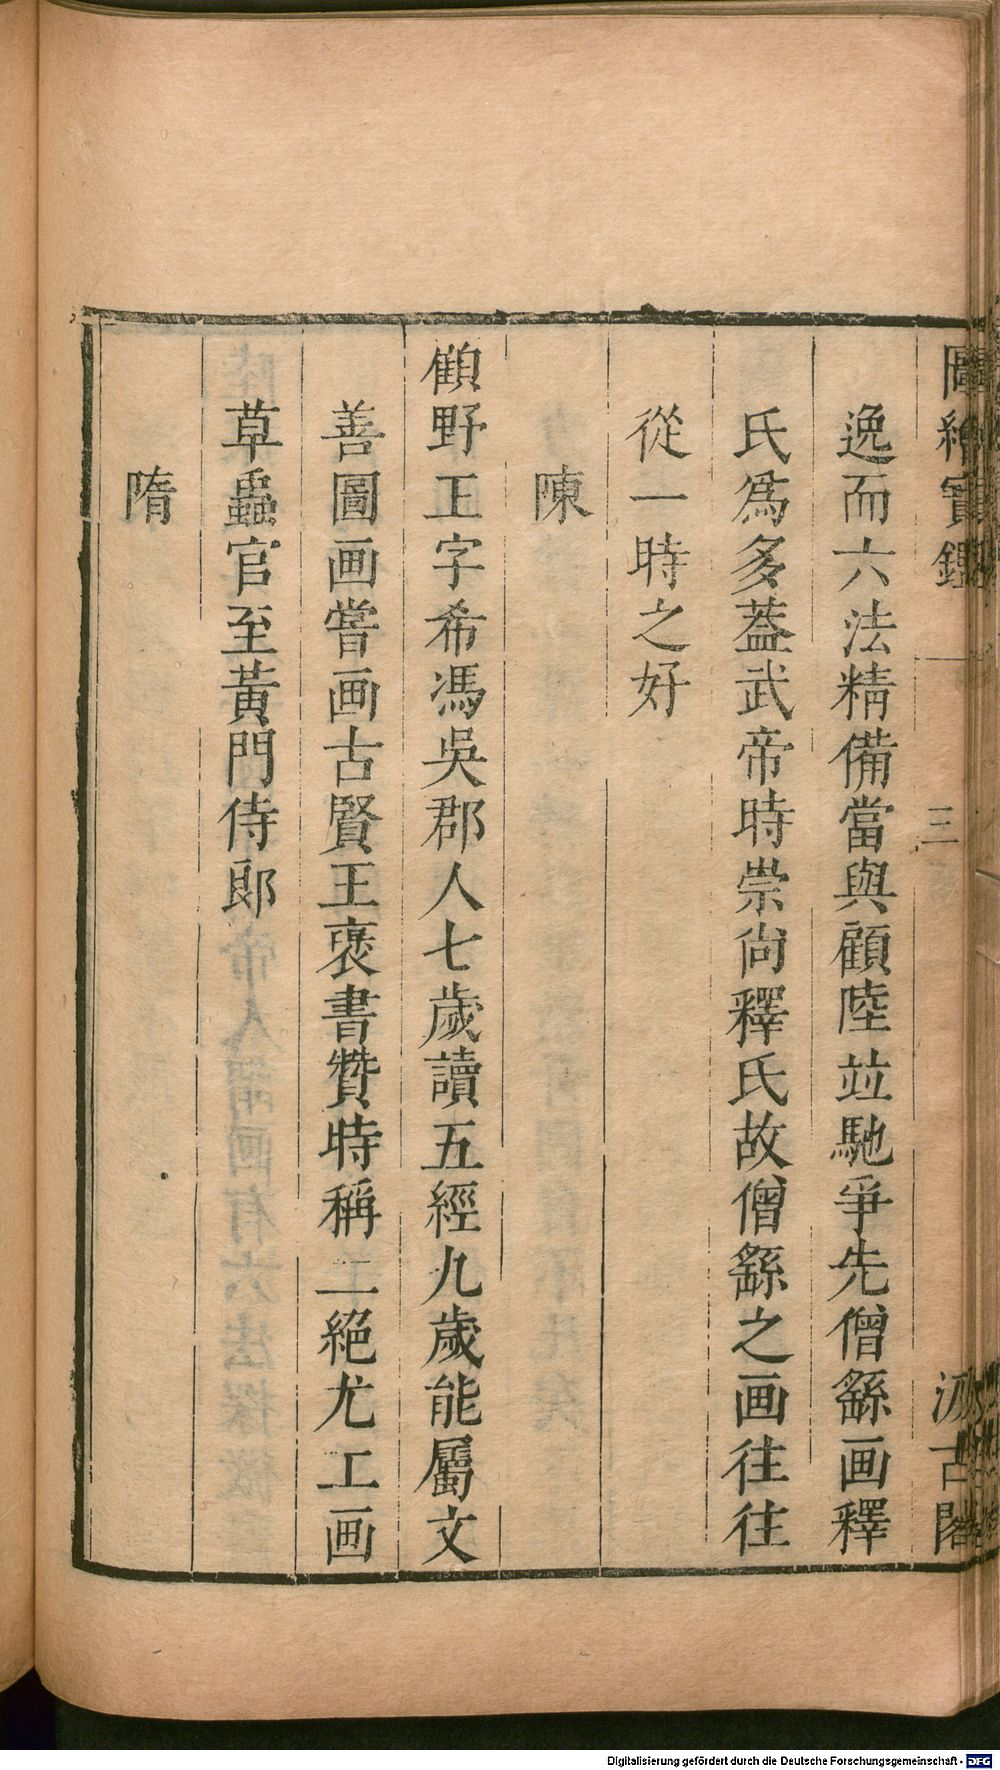 圖繪寶鑑 三 汲古閣
逸而六法精備當與顧陸竝馳爭先僧繇画釋
氏爲多蓋武帝時崇尚釋氏故僧繇之画往往
從一時之好
陳
顧野王字希馮吳郡人七歲讀五經九歲能屬文
善圖画嘗画古賢王褒書贊時稱二絕尤工画
草蟲官至黃門侍郎
隋
Digitalisierung gefördert durch die Deutsche Forschungsgemeinschaft - DFG